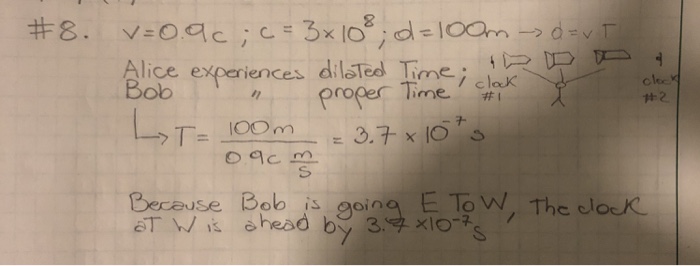 #8. v=0.9c ; c = 3×10⁸ ; d=100m → d=vT
Alice experiences dilated Time;
Bob " proper Time
clock #1
clock #2
↳ T = 100m / 0.9c m/s = 3.7 × 10⁻⁷ s
Because Bob is going E To W, The clock
aT W is ahead by 3.7 ×10⁻⁷ s